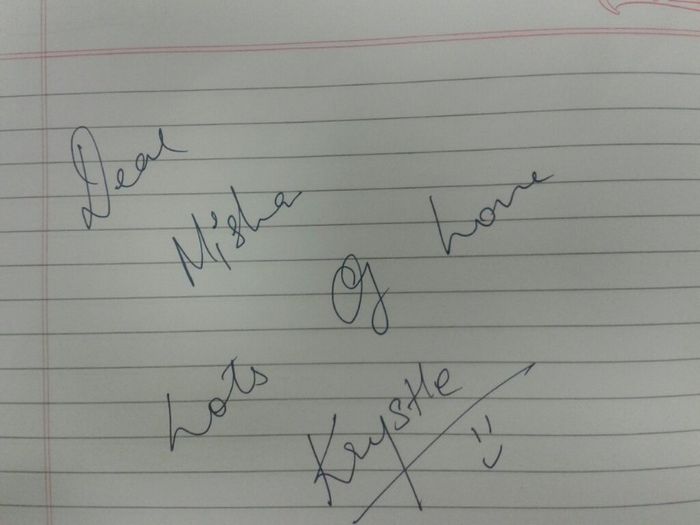 Dear
Misha
Lots Of Love
Krystle